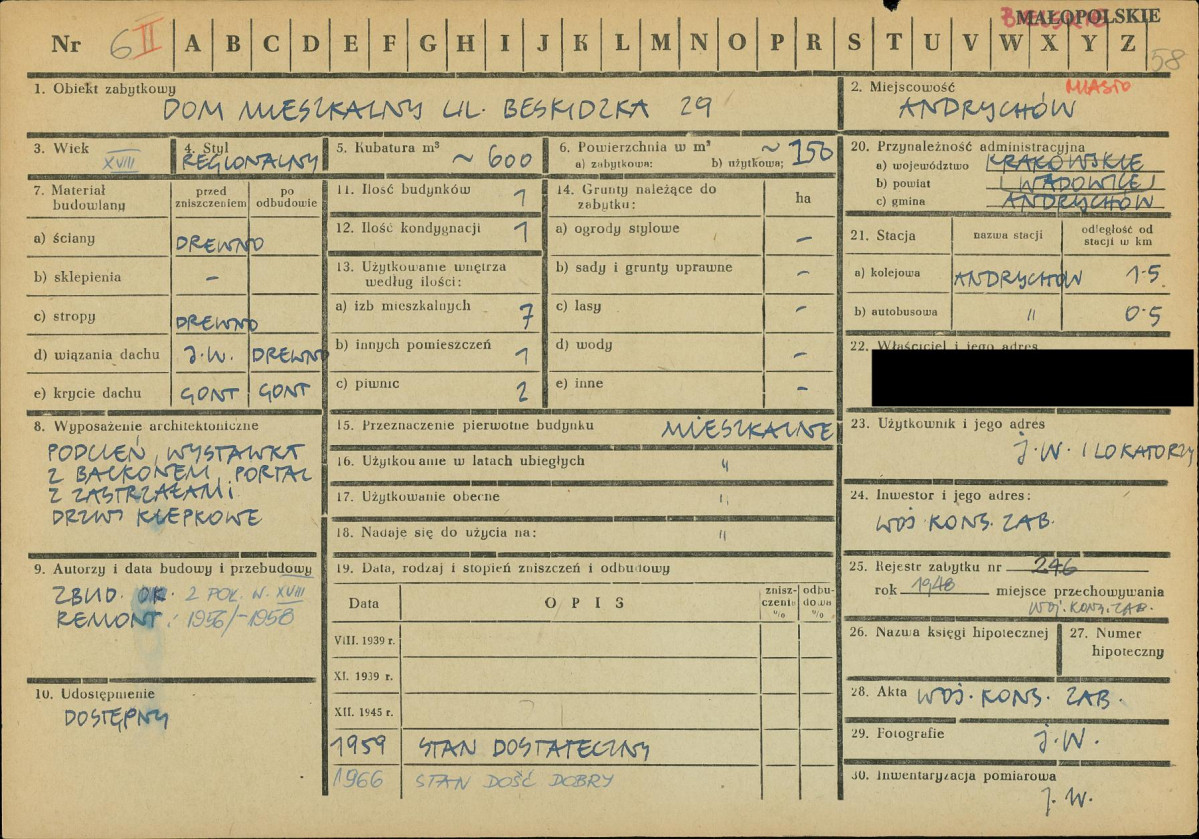 MAŁOPOLSKIE
Nr 6 II A B C D E F G H I J K L M N O P R S T U V W X Y Z 58
1. Obiekt zabytkowy
DOM MIESZKALNY UL. BESKIDZKA 29
2. Miejscowość MIASTO
ANDRYCHÓW
3. Wiek XVIII
4. Styl
REGIONALNY
5. Kubatura m³ ~ 600
6. Powierzchnia w m² ~ 150
a) zabytkowa: b) użytkowa:
20. Przynależność administracyjna
a) województwo KRAKOWSKIE
b) powiat WADOWICE
c) gmina ANDRYCHÓW
7. Materiał budowlany
przed zniszczeniem
po odbudowie
a) ściany DREWNO
b) sklepienia –
c) stropy DREWNO
d) wiązania dachu J.W. DREWNO
e) krycie dachu GONT GONT
11. Ilość budynków 1
12. Ilość kondygnacji 1
13. Użytkowanie wnętrza
według ilości:
a) izb mieszkalnych 7
b) innych pomieszczeń 1
c) piwnic 2
14. Grunty należące do
zabytku: ha
a) ogrody stylowe –
b) sady i grunty uprawne –
c) lasy –
d) wody –
e) inne –
21. Stacja nazwa stacji odległość od
stacji w km
a) kolejowa ANDRYCHÓW 1.5
b) autobusowa " 0.5
22. Właściciel i jego adres
8. Wyposażenie architektoniczne
PODCIEŃ, WYSTAWKA
Z BALKONEM, PORTAL
Z ZASTRZAŁAMI
DRZWI KLEPKOWE
15. Przeznaczenie pierwotne budynku MIESZKALNE
16. Użytkowanie w latach ubiegłych "
17. Użytkowanie obecne "
18. Nadaje się do użycia na: "
23. Użytkownik i jego adres
J.W. I LOKATORZY
24. Inwestor i jego adres:
WOJ. KONS. ZAB.
9. Autorzy i data budowy i przebudowy
ZBUD. OK. 2 POŁ. W. XVIII
REMONT: 1956/-1958
10. Udostępnienie
DOSTĘPNY
19. Data, rodzaj i stopień zniszczeń i odbudowy
Data OPIS
znisz-
czenie
%
odbu-
dowa
%
VIII. 1939 r.
XI. 1939 r.
XII. 1945 r.
1959 STAN DOSTATECZNY
1966 STAN DOŚĆ DOBRY
25. Rejestr zabytku nr 246
rok 1948 miejsce przechowywania
WOJ. KONS. ZAB.
26. Nazwa księgi hipotecznej
27. Numer
hipoteczny
28. Akta WOJ. KONS. ZAB.
29. Fotografie J.W.
30. Inwentaryzacja pomiarowa
J.W.